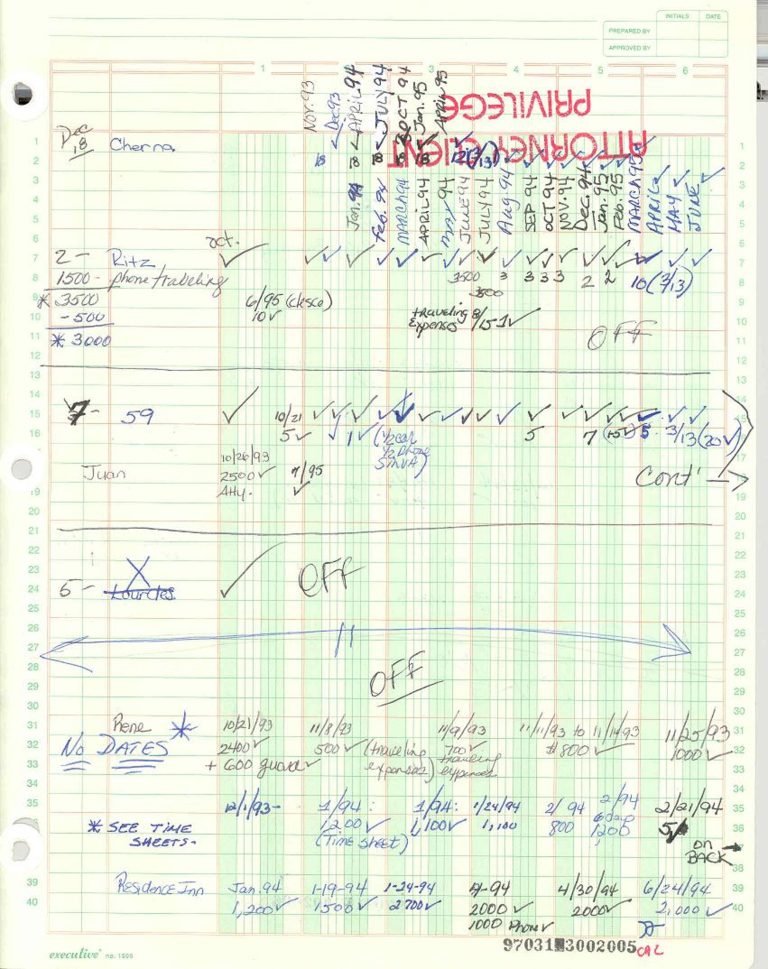 INITIALS DATE
PREPARED BY
APPROVED BY
1 2 3 4 5 6
Nov. 93 Dec 93 APRIL 94 JULY 94 OCT 94 Jan. 95 APRIL 95
ATTORNEY CLIENT
PRIVILEGE
Dec
18
18 ✓ 18 18 18 18 12 (3/13)
Jan. 94 Feb. 94 MARCH 94 APRIL 94 May 94 JUNE 94 JULY 94 Aug 94 SEP 94 OCT 94 NOV. 94 Dec. 94 Jan. 95 Feb. 95 MARCH 95 APRIL MAY JUNE
oct.
2 - Ritz ✓ ✓ ✓ ✓ ✓ ✓ ✓ ✓ ✓ ✓ ✓ ✓ ✓ ✓ ✓ ✓ ✓ ✓ ✓
1500 - phone traveling 3500 3 3 3 3 2 2 10 (3/13)
3500
* 3500 6/95
- 500 10 ✓ traveling expenses 8/15 1 ✓ OFF
* 3000
7 - 59 ✓ 10/21 ✓ ✓ ✓ ✓ ✓ ✓ ✓ ✓ ✓ ✓ ✓ ✓ ✓ ✓ ✓ ✓ ✓
5 ✓ ✓ 1 ✓ (1/2 car 1/2 phone) 5 7 (10 ✓) 5 3/13 (20 ✓)
10/26/93
Juan 2500 ✓ 7/95 Cont' →
Atty. ✓
5 - Lourdes ✓ OFF
OFF
Rene * 10/21/93 11/8/93 11/9/93 11/11/93 to 11/14/93 11/25/93
NO DATES 2400 ✓ 500 ✓ (traveling expenses) 700 ✓ traveling expenses $800 ✓ 1000 ✓
+ 600
12/1/93- 1/94: 1/94: 1/24/94 2/94 2/94 2/21/94
* SEE TIME SHEETS- 1,200 ✓ (Time sheet) 1,100 ✓ 1,100 800 6 day 1200 5 ✓
on BACK →
Residence Inn Jan. 94 1-19-94 1-29-94 4-94 4/30/94 6/24/94
1,200 ✓ 1500 ✓ 2700 ✓ 2000 ✓ 2000 ✓ 2,000 ✓
1000 Phone ✓
97031 3002005 CAL
executive no. 1506